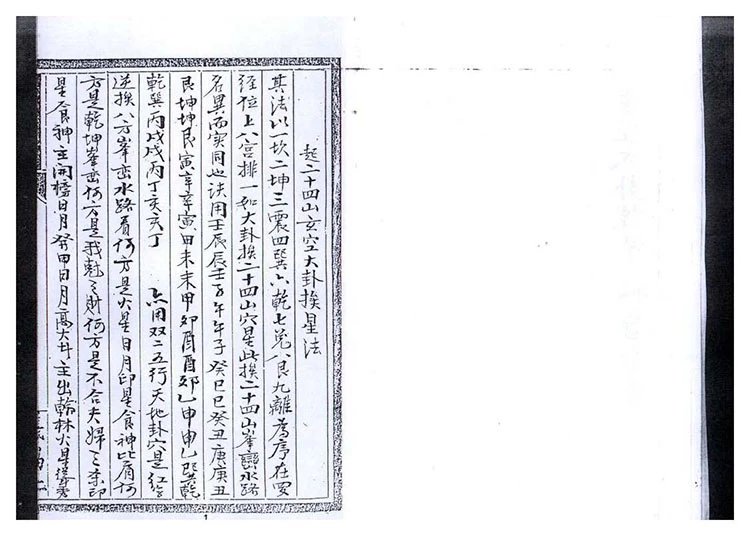 起二十四山玄空大卦挨星法
其法以一坎二坤三震四巽六乾七兌八艮九離為序在安
經位上八宮排一如大卦挨二十四山穴星此挨二十四山峯巒水路
名異而實同也诀用壬辰辰壬子午午子癸巳巳癸丑庚庚丑
艮坤坤艮寅辛辛寅甲未未甲卯酉酉卯乙申申乙巽乾
乾巽丙戌戌丙丁亥亥丁 用双二五行天地卦穴是红
逆挨八方峯峦水路看何方是火星日月印星食神比肩何
方是乾坤峯峦何方是我尅之財何方是不合夫婦之
星食神主開橋日月癸甲日月高大井主出翰林火星
1